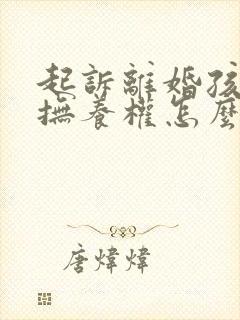 起訴離婚孩
撫養權怎麼
唐煒煒